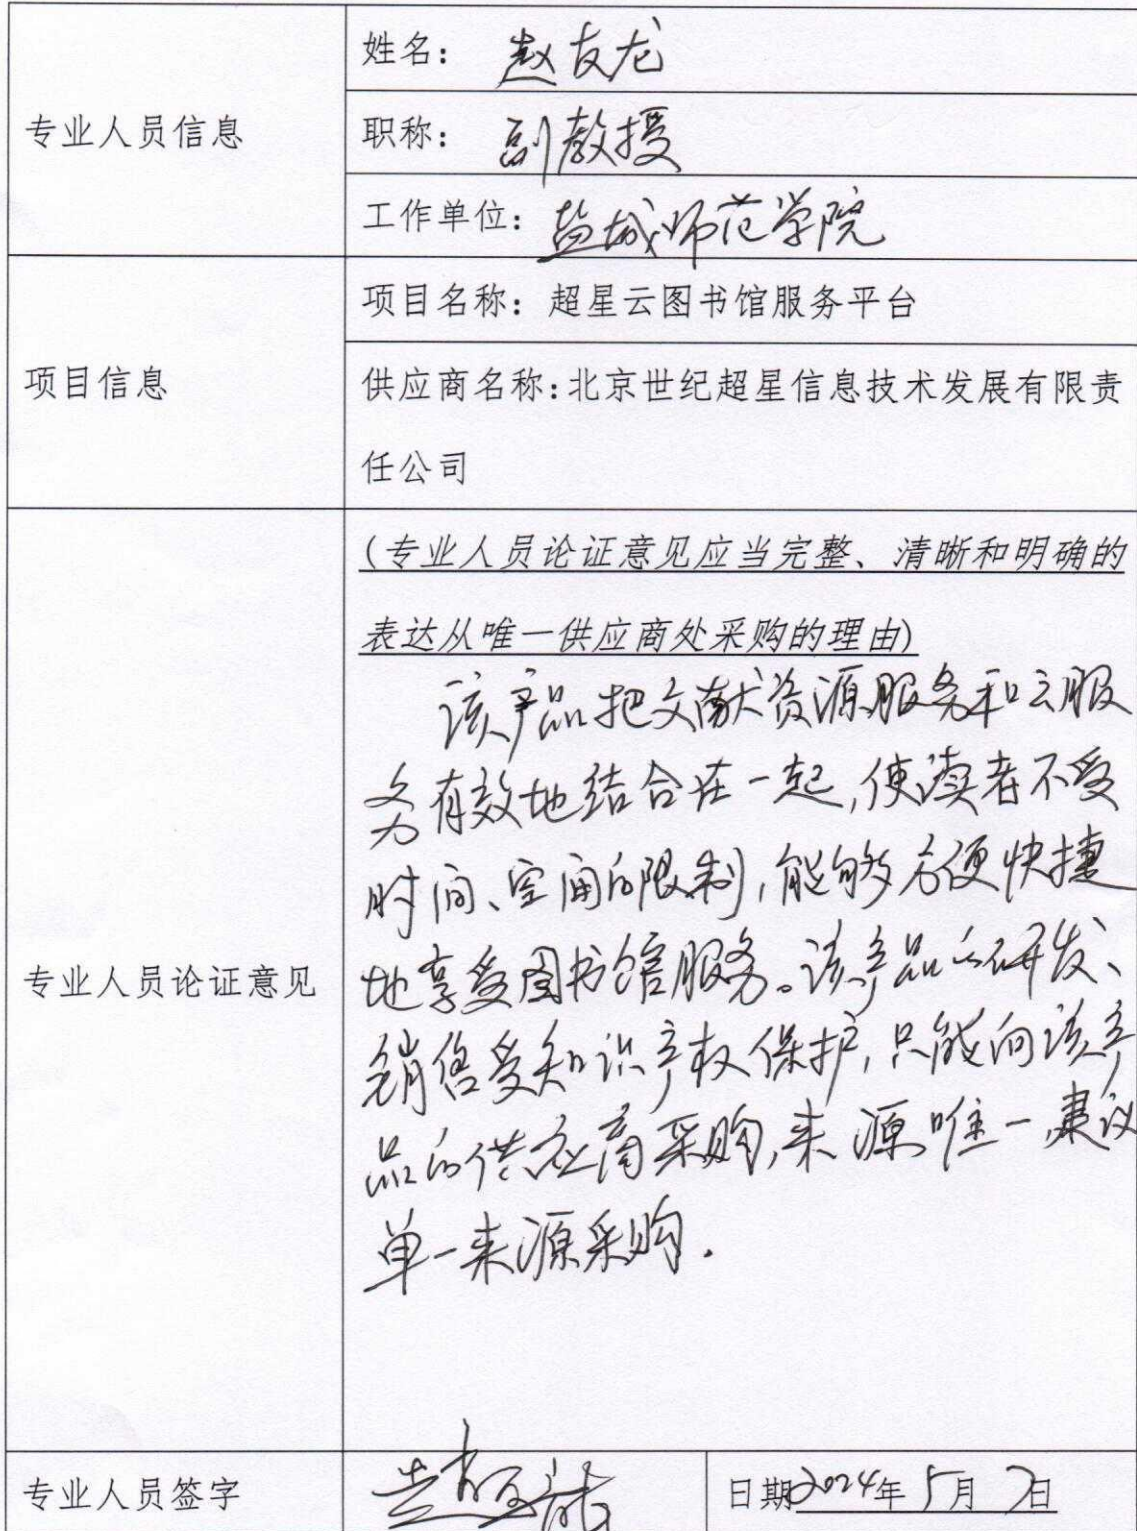 专业人员信息
姓名：赵友龙
职称：副教授
工作单位：盐城师范学院
项目信息
项目名称：超星云图书馆服务平台
供应商名称：北京世纪超星信息技术发展有限责
任公司
专业人员论证意见
(专业人员论证意见应当完整、清晰和明确的
表达从唯一供应商处采购的理由)
该产品把文献资源服务和云服
务有效地结合在一起,使读者不受
时间、空间的限制,能够方便快捷
地享受图书馆服务。该产品的研发、
销售受知识产权保护,只能向该产
品的供应商采购,来源唯一,建议
单一来源采购.
专业人员签字
赵友龙
日期2024年5月7日